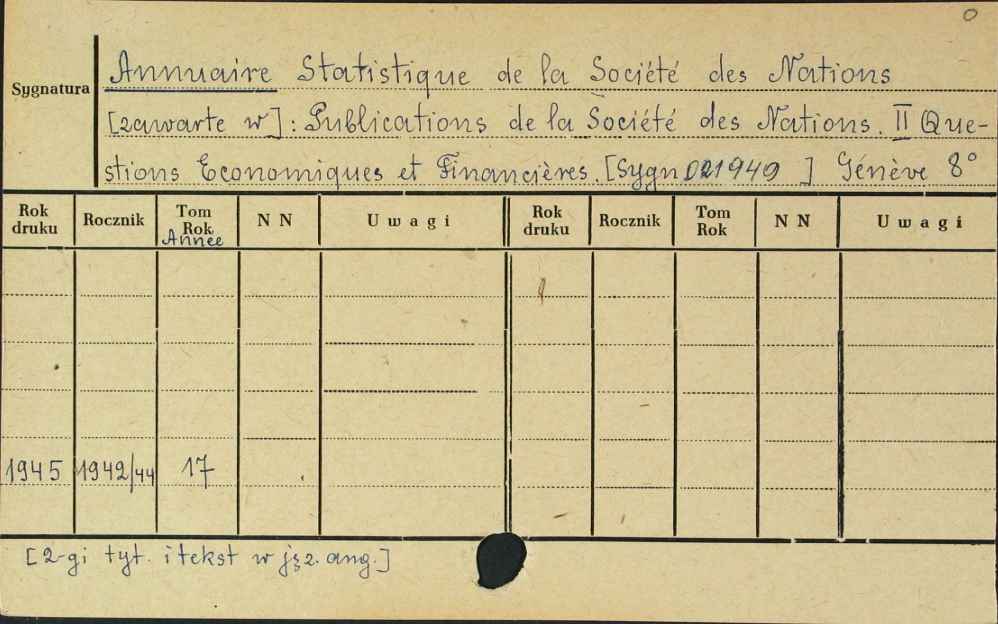 0
Annuaire Statistique de la Société des Nations
Sygnatura
[zawarte w]: Publications de la Société des Nations. II Que-
stions Economiques et Financières. [Sygn 021949 ] Génève 8°
Rok druku Rocznik Tom Rok N N Uwagi Rok druku Rocznik Tom Rok N N Uwagi
Année
1945 1942/44 17
[2-gi tyt. i tekst w jęz. ang.]